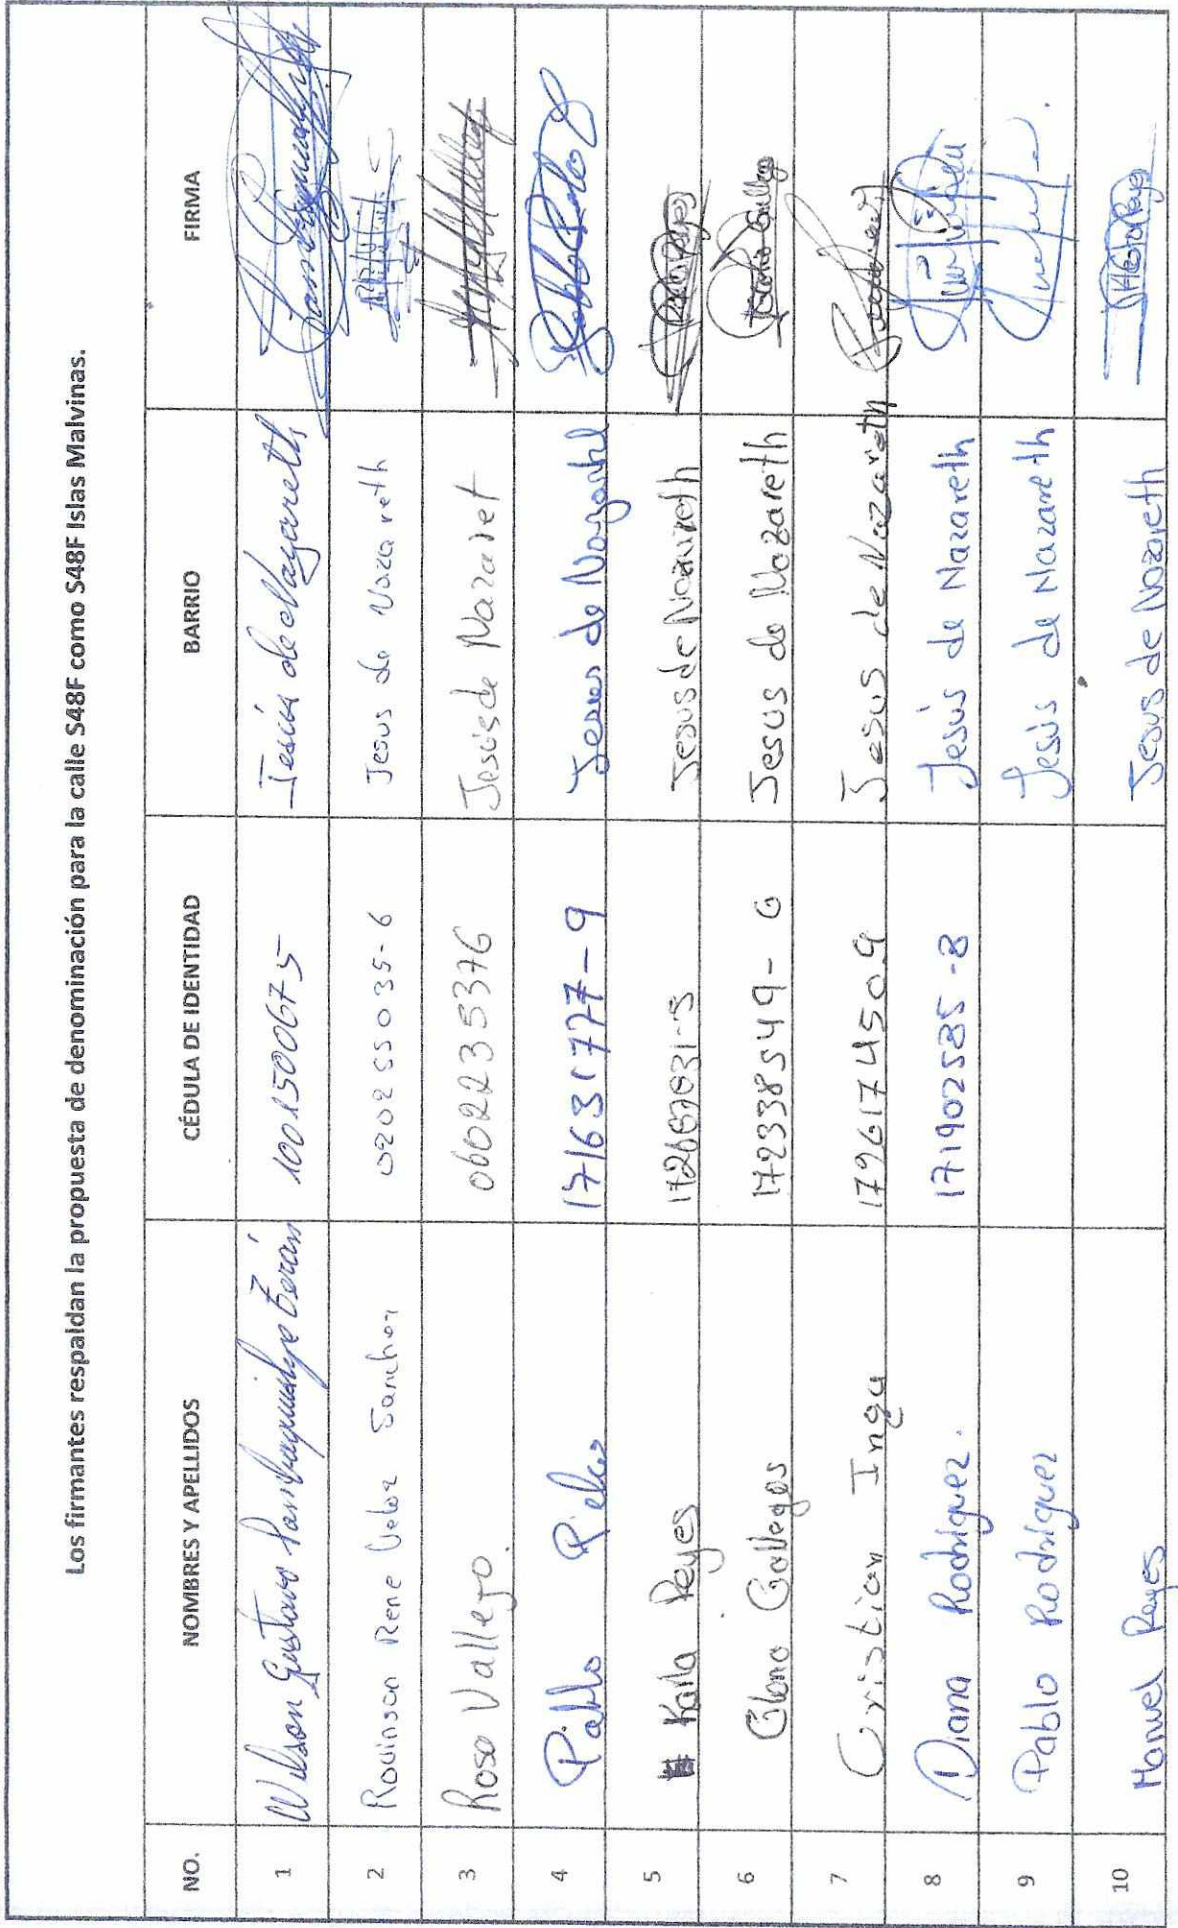 Los firmantes respaldan la propuesta de denominación para la calle S48F como S48F Islas Malvinas.
NO. NOMBRES Y APELLIDOS CÉDULA DE IDENTIDAD BARRIO FIRMA
1 Wilson Gustavo 1001500675 Jesús de Nazareth
2 Rovinson Rene Veloz Sanchez 020255035-6 Jesus de Nazareth
3 Rosa Vallejo. 0602235376 Jesús de Nazaret
4 Pablo 171631777-9 Jesus de
5 Karla Reyes Jesus de Nazareth Karla Reyes
6 Gloria Gallegos 172338549-0 Jesus de Nazareth
7 Cristian Inga 1796174509 Jesus de Nazareth
8 Diana Rodríguez. 171902585-8 Jesús de Nazareth
9 Pablo Rodríguez Jesús de Nazareth
10 Manuel Reyes Jesus de Nazareth